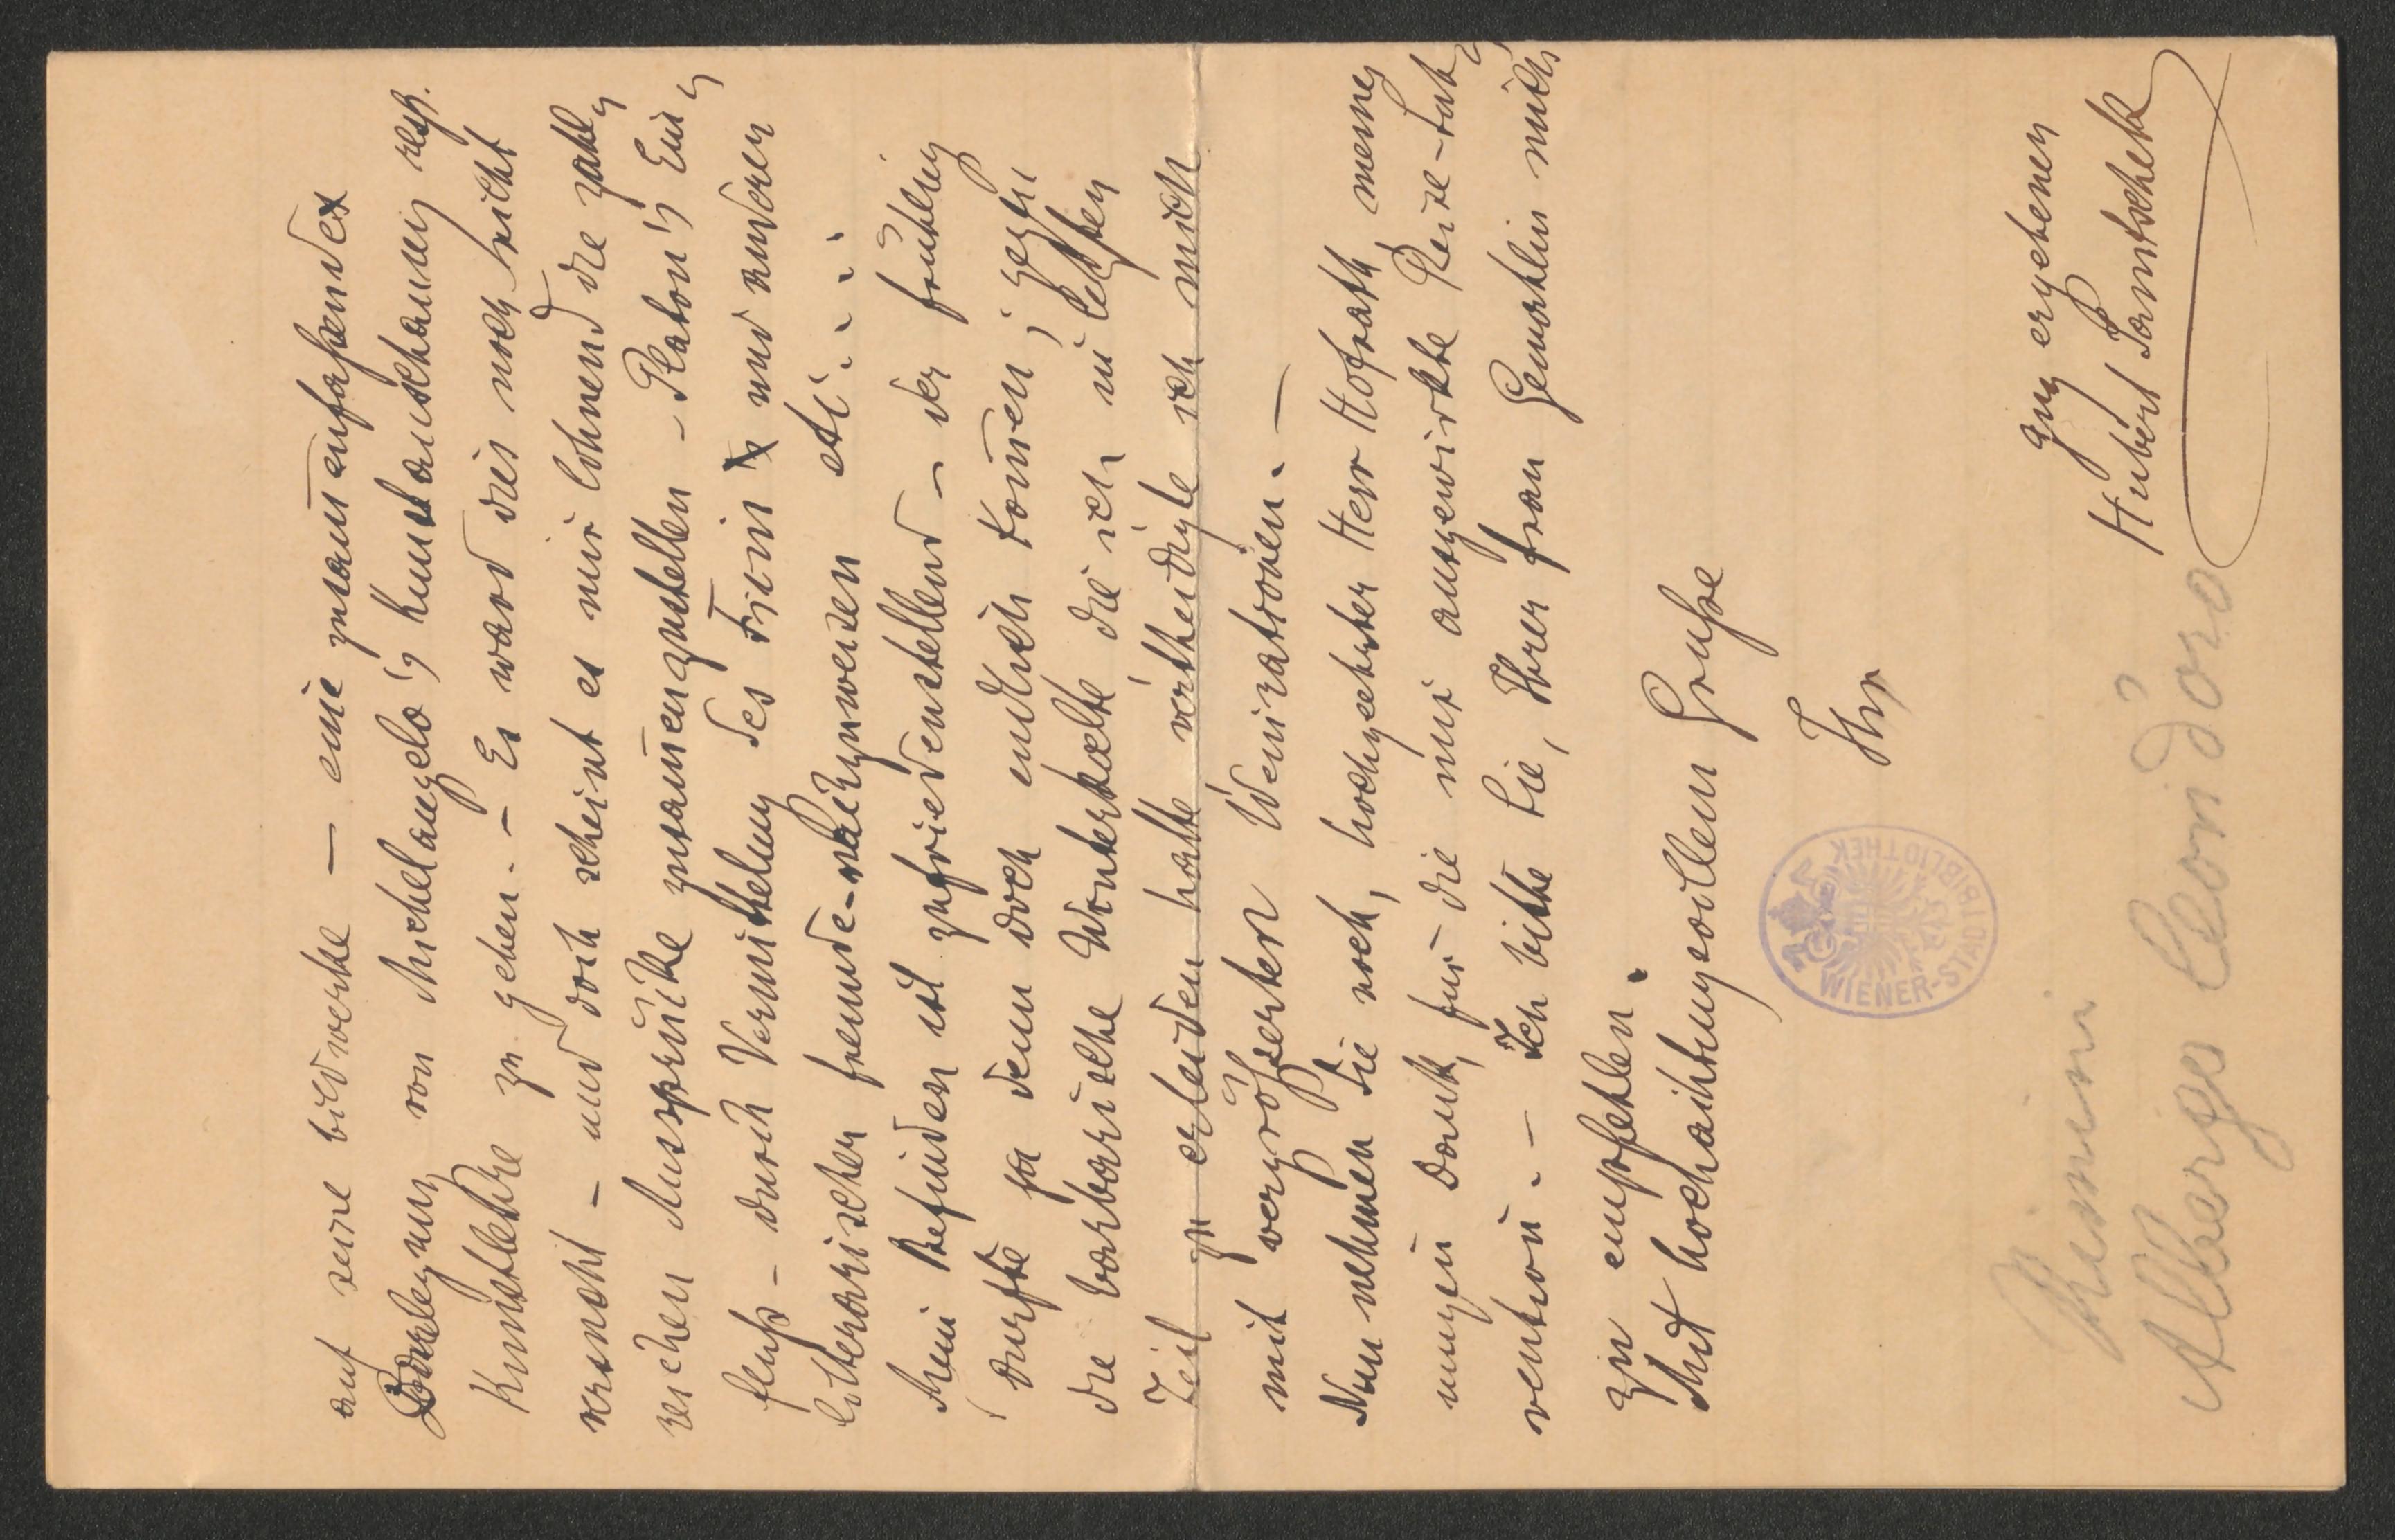 auf seine Bildwerke — eine zusam̅enfassendex
Darlegung von Michelangelo's Kunstanschauung resp.
Kunstlehre zu geben. – Es ward dies noch nicht
versucht – und doch scheint es mir lohnend die zahl-
reichen Aussprüche zusam̅enzustellen – Platon's Ein-
fluss – durch Vermittelung des Ficin x und anderer
litterarischer Freunde – nachzuweisen etc. . . .
Mein Befinden ist zufriedenstellend – der Frühling
dürfte ja denn doch endlich kom̅en; gegen
die barbarische Winterkälte die ich in letzter
Zeit zu erleiden hatte vertheidigte ich mich
mit vergrösserten Weinrationen. —
Nun nehmen Sie noch, hochgeehrter Herr Hofrath meinen
innigen Dank für die mir ausgewirkte Reise-Sub-
vention. – Ich bitte Sie, Ihrer Frau Gemahlin mich
zu empfehlen.
Mit hochachtungsvollem Grusse
Ihr
ganz ergebener
Hubert Janitschek
WIENER-STADTBIBLIOTHEK
Rimini
Albergo Leon d'oro